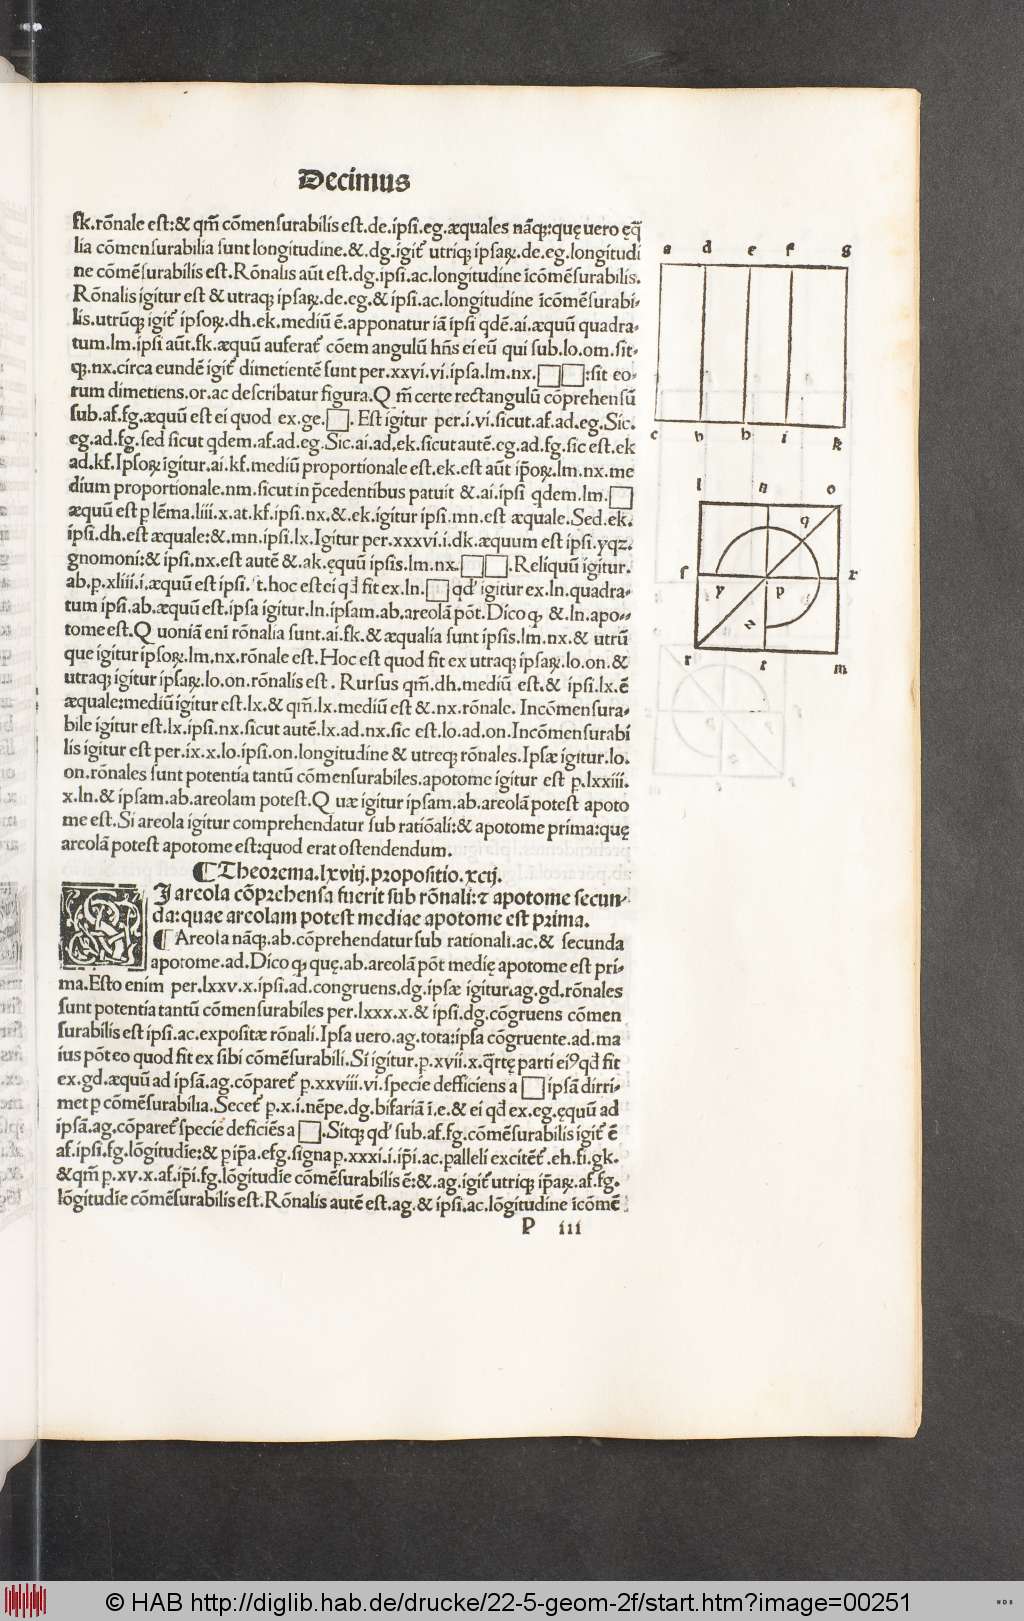 Decimus
fk.rõnale est:&qm̃ cõmensurabilis est.de.ipsi.eg.æquales nãq;:quę uero ęq̃
lia cõmensurabilia sunt longitudine.&.dg.igit᷑ utriq; ipsaꝝ.de.eg.longitudi
ne cõmẽsurabilis est.Rõnalis aũt est.dg.ipsi.ac.longitudine ĩcõmẽsurabilis.
Rõnalis igitur est & utraq; ipsaꝝ.de.eg.& ipsi.ac.longitudine ĩcõmẽsurabi-
lis.utrũq; igit᷑ ipsoꝝ.dh.ek.mediũ ẽ.apponatur iã ipsi qdẽ.ai.æquũ quadra-
tum.lm.ipsi aũt.fk.æquũ auferat᷑ cõem angulũ hñs ei eũ qui sub.lo.om.sit-
q;.nx.circa eundẽ igit᷑ dimetientẽ sunt per.xxvi.vi.ipsa.lm.nx.□□:sit eo-
rum dimetiens.or.ac describatur figura.Q m̃ certe rectangulũ cõprehensũ
sub.af.fg.æquũ est ei quod ex.ge.□. Est igitur per.i.vi.sicut.af.ad.eg.Sic.
eg.ad.fg.sed sicut qdem.af.ad.eg.Sic.ai.ad.ek.sicut autẽ.eg.ad.fg.sic est.ek
ad.kf.Ipsoꝝ igitur.ai.kf.mediũ proportionale est.ek.est aũt ip̃oꝝ.lm.nx.me
dium proportionale.nm.sicut in p̃cedentibus patuit &.ai.ipsi qdem.lm.□
æquũ est p lẽma.liii.x.at.kf.ipsi.nx.&.ek.igitur ipsi.mn.est æquale.Sed.ek.
ipsi.dh.est æquale:&.mn.ipsi.lx.Igitur per.xxxvi.i.dk.æquum est ipsi.yqz.
gnomoni:& ipsi.nx.est autẽ &.ak.ęquũ ipsis.lm.nx.□□.Reliquũ igitur.
ab.p.xliii.i.æquũ est ipsi. t.hoc est ei qd̃ fit ex.ln.□ qd̃ igitur ex.ln.quadra-
tum ipsi.ab.æquũ est.ipsa igitur.ln.ipsam.ab.areolã põt.Dico q; &.ln.apo-
tome est.Q uoniã eni rõnalia sunt.ai.fk.& æqualia sunt ipsis.lm.nx.& utrũ
que igitur ipsoꝝ.lm.nx.rõnale est.Hoc est quod fit ex utraq; ipsaꝝ.lo.on.&
utraq; igitur ipsaꝝ.lo.on.rõnalis est. Rursus qm̃.dh.mediũ est.& ipsi.lx.ẽ
æquale:mediũ igitur est.lx.& qm̃.lx.mediũ est &.nx.rõnale. Incõmensura-
bile igitur est.lx.ipsi.nx.sicut autẽ.lx.ad.nx.sic est.lo.ad.on.Incõmensurabi
lis igitur est per.ix.x.lo.ipsi.on.longitudine & utreq; rõnales.Ipsæ igitur.lo.
on.rõnales sunt potentia tantũ cõmensurabiles.apotome igitur est p.lxxiii.
x.ln.& ipsam.ab.areolam potest.Q uæ igitur ipsam.ab.areolã potest apoto
me est.Si areola igitur comprehendatur sub ratiõali:& apotome prima:quę
areolã potest apotome est:quod erat ostendendum.
¶Theorema.lxviij.propositio.xcij.
SI areola cõprehensa fuerit sub rõnali:⁊ apotome secun-
da:quae areolam potest mediae apotome est prima.
¶Areola nãq;.ab.cõprehendatur sub rationali.ac.& secunda
apotome.ad.Dico q; quę.ab.areolã põt medię apotome est pri-
ma.Esto enim per.lxxv.x.ipsi.ad.congruens.dg.ipsæ igitur.ag.gd.rõnales
sunt potentia tantũ cõmensurabiles per.lxxx.x.& ipsi.dg.cõgruens cõmen
surabilis est ipsi.ac.expositæ rõnali.Ipsa uero.ag.tota:ipsa cõgruente.ad.ma
ius põt eo quod fit ex sibi cõmẽsurabili.Si igitur.p.xvii.x.q̃rtę parti eiꝰ qd̃ fit
ex.gd.æquũ ad ipsã.ag.cõparet᷑ p.xxviii.vi.specie defficiens a □ ipsã dirri-
met p cõmẽsurabilia.Secet᷑ p.x.i.nẽpe.dg.bifariã ĩ.e.& ei qd̃ ex.eg.ęquũ ad
ipsã.ag.cõparet᷑ specie deficiẽs a □.Sitq; qd̃ sub.af.fg.cõmẽsurabilis igit᷑ ẽ
af.ipsi.fg.lõgitudie:& p ip̃a.efg.signa p.xxxi.i.ip̃i.ac.palleli excitẽt᷑.eh.fi.gk.
&qm̃ p.xv.x.af.ip̃i.fg.lõgitudie cõmẽsurabilis ẽ:&.ag.igit᷑ utriq; ip̃aꝝ.af.fg.
lõgitudie cõmẽsurabilis est.Rõnalis autẽ est.ag.& ipsi.ac.lõgitudine ĩcõmẽ
P iii
a d e f g
c v h i k
l n o
q
f x
y p
z
r t m
© HAB http://diglib.hab.de/drucke/22-5-geom-2f/start.htm?image=00251